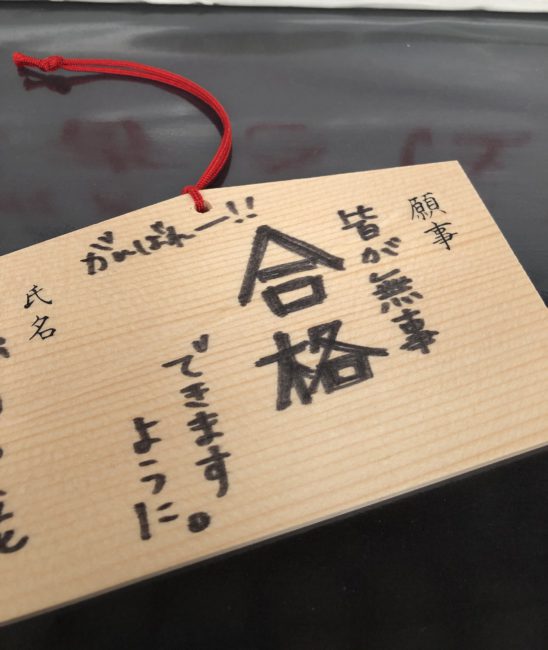 願事
皆が無事
合格
できます
ように。
がんばれー!!
氏名